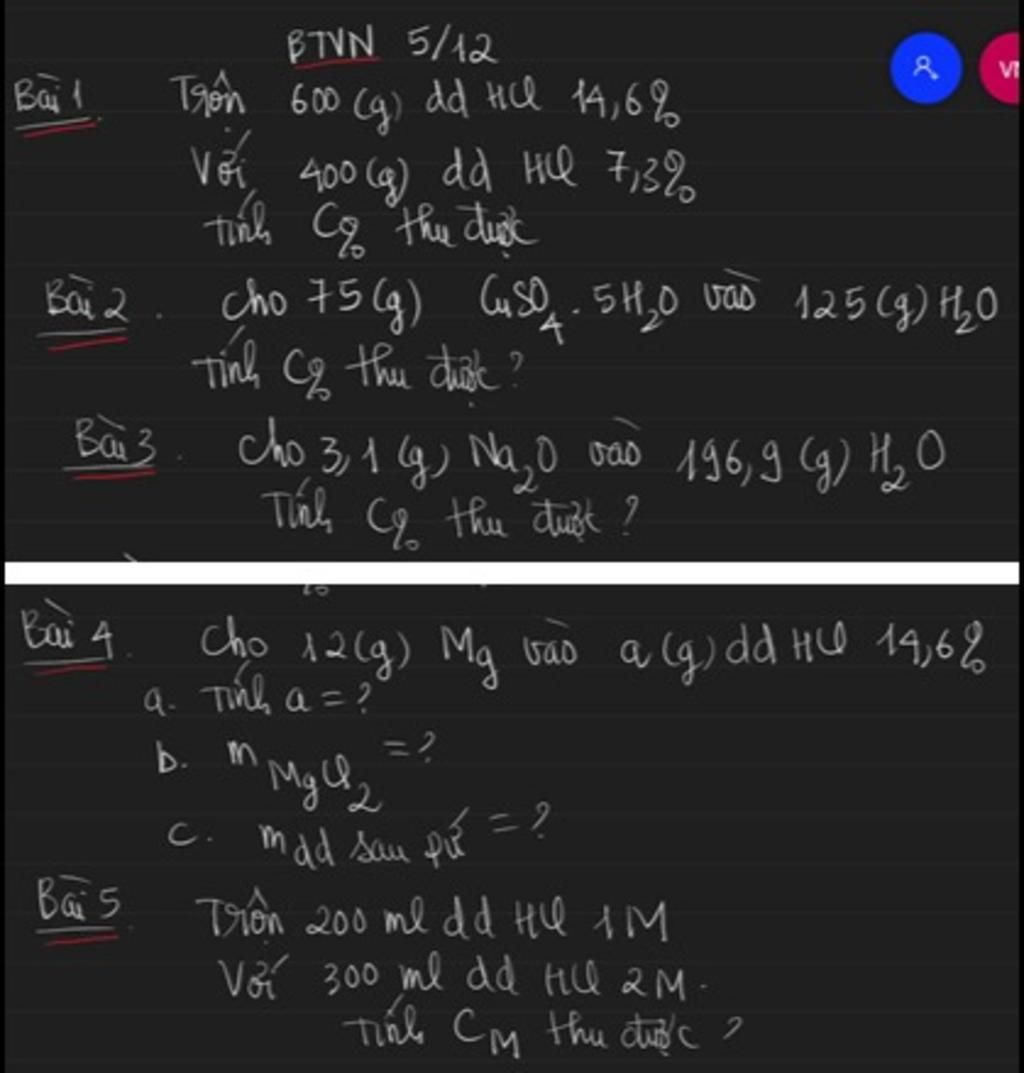 BTVN 5/12
Bài 1. Trộn 600 (g) dd HCl 14,6%
Với 400 (g) dd HCl 7,3%
Tính C% thu được
Bài 2. Cho 75 (g) CuSO4.5H2O vào 125 (g) H2O
Tính C% thu được?
Bài 3. Cho 3,1 (g) Na2O vào 196,9 (g) H2O
Tính C% thu được?
Bài 4. Cho 12 (g) Mg vào a (g) dd HCl 14,6%
a. Tính a = ?
b. mMgCl2 = ?
c. mdd sau pứ = ?
Bài 5. Trộn 200 ml dd HCl 1M
Với 300 ml dd HCl 2M.
Tính CM thu được?